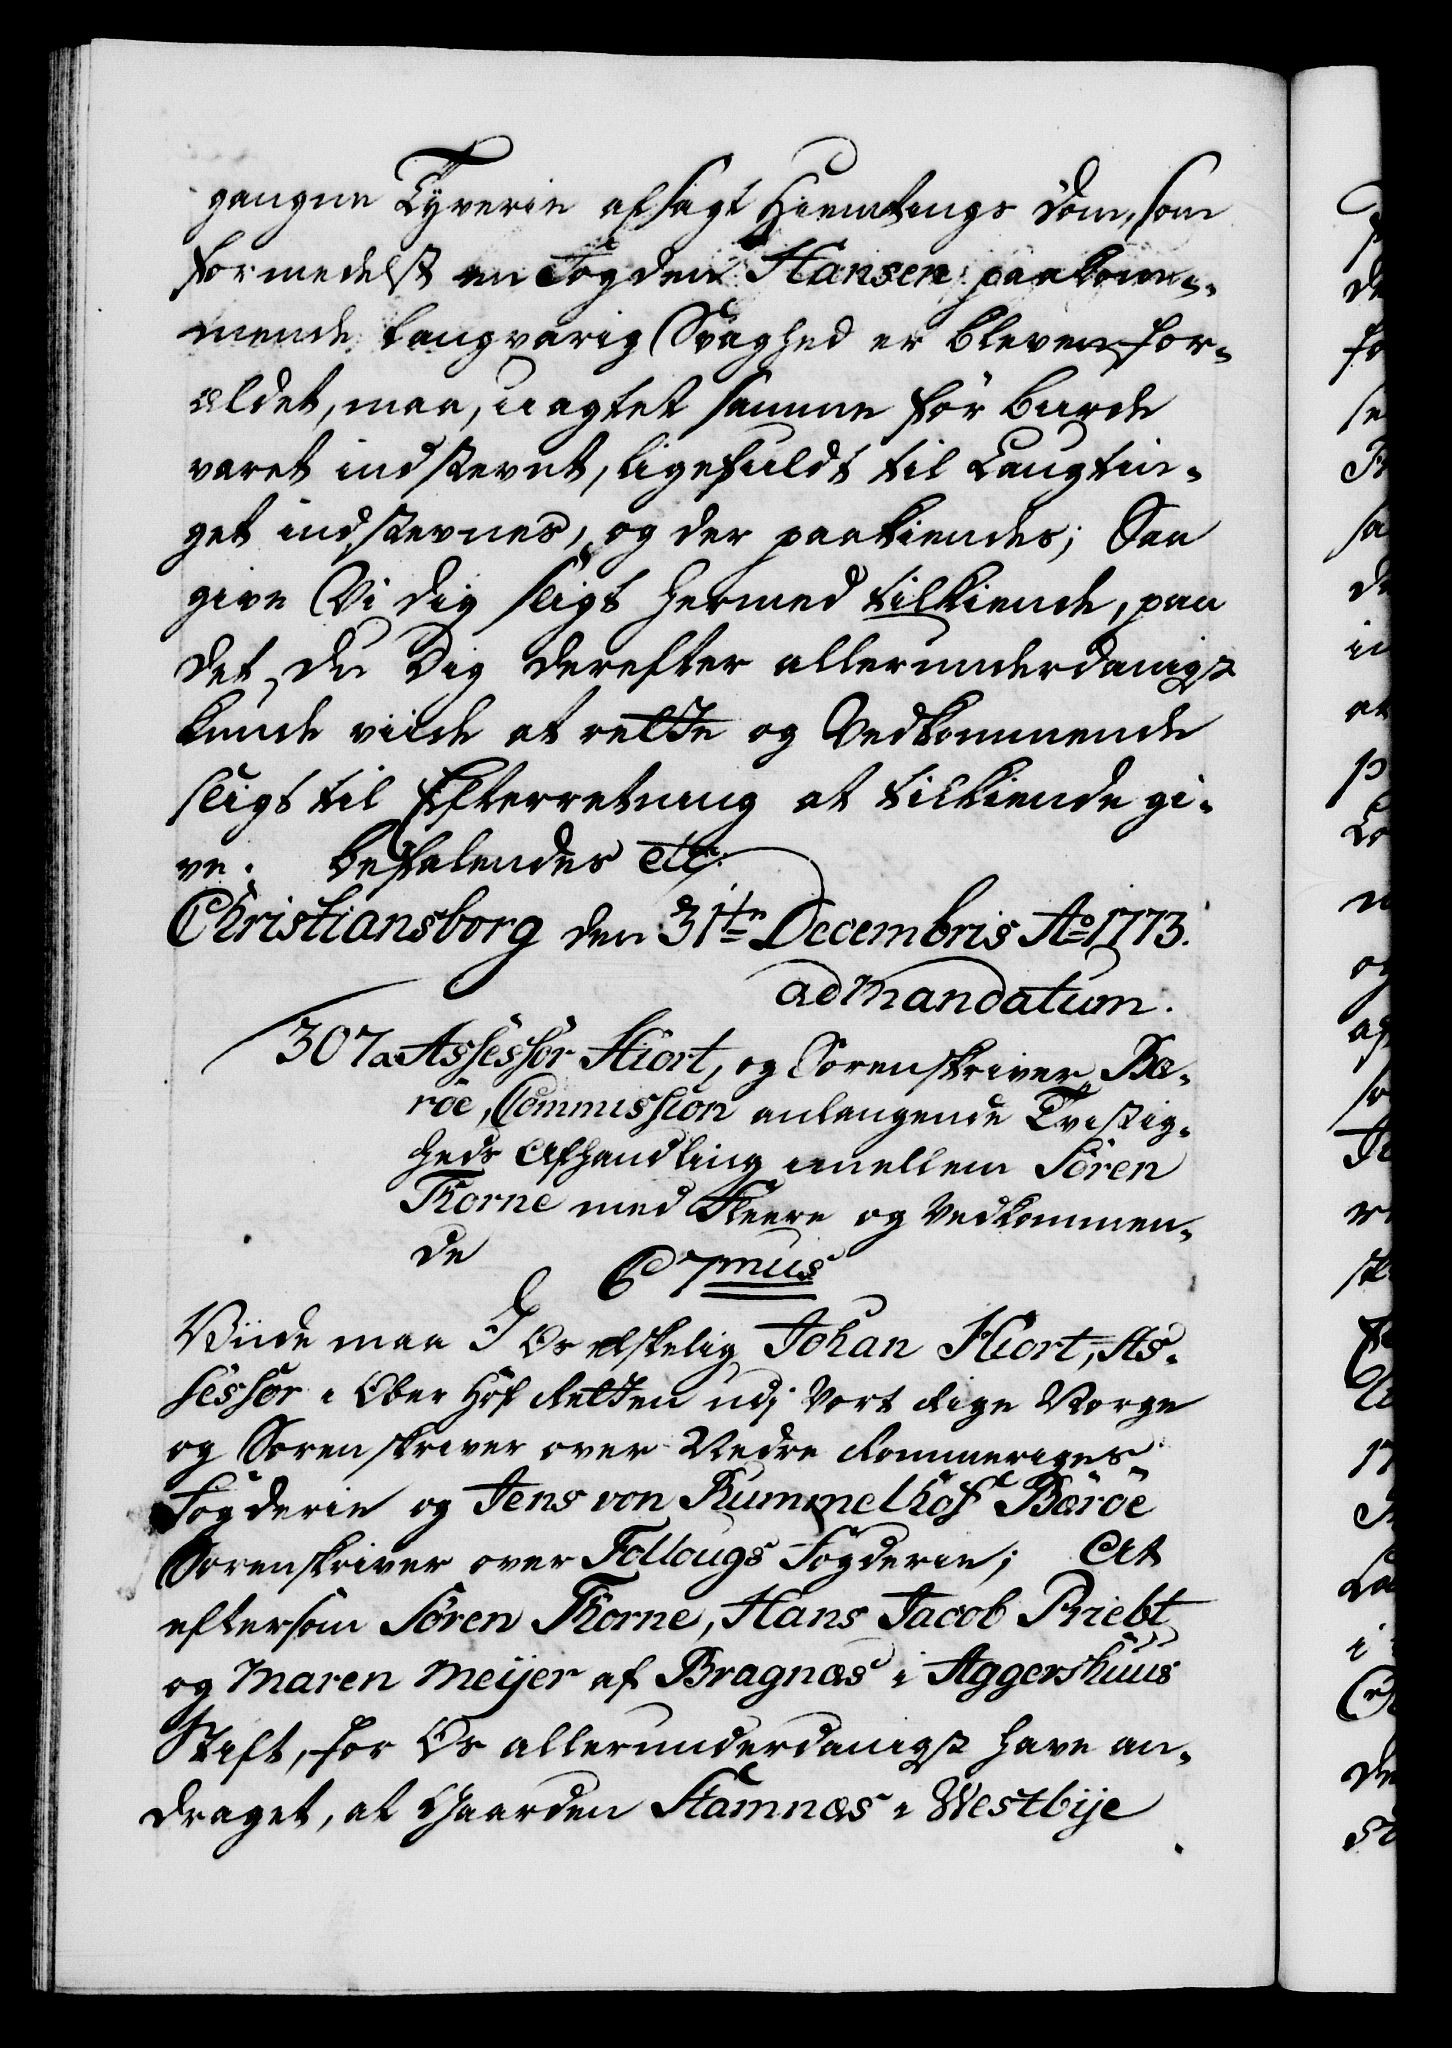 gangne Tyverie afsagt Hiemtings Dom, som
formedelst en Fogden Hansen paakom-
mende langvarig Svaghed er bleven for-
ældet, maa, uagtet samme før burde
varet indstevnt, ligefuldt til Laugtin-
get indstevnes, og der paakiendes; Saa
give Vi dig sligt hermed tilkiende, paa
det du Dig derefter allerunderdanigst
kunde vide at rette og Vedkommende
sligt til Efterretning at tilkiende gi-
ve. Befalendes etc:
Christiansborg den 31te Decembris Ao 1773.
ad Mandatum.
307 a Assessor Hiort, og Sorenskriver Bæ-
röe, Commission anlangende Tvistig-
heds Afhandling imellem Sören
Thorne med Fleere og Vedkommen-
de
C 7mus
Viide maa I Os elskelig Johan Hiort, As-
sessor i Ober Hof Retten udj Vort Rige Norge
og Sorenskriver over Nedre Rommeriges
Fogderie og Jens von Rummelhof Bæröe
Sorenskriver over Follougs Fogderie; At
eftersom Sören Thorne, Hans Jacob Priebt
og Maren Meijer af Bragnæs i Aggershuus
Stift, for Os allerunderdanigst have an-
draget, at Gaarden Stamnæs i Westbije